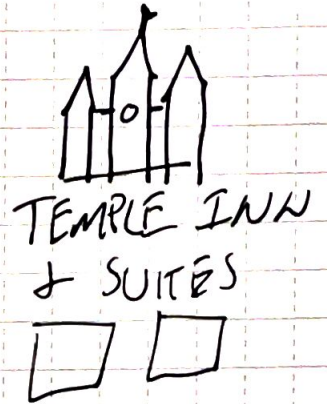 TEMPLE INN
& SUITES